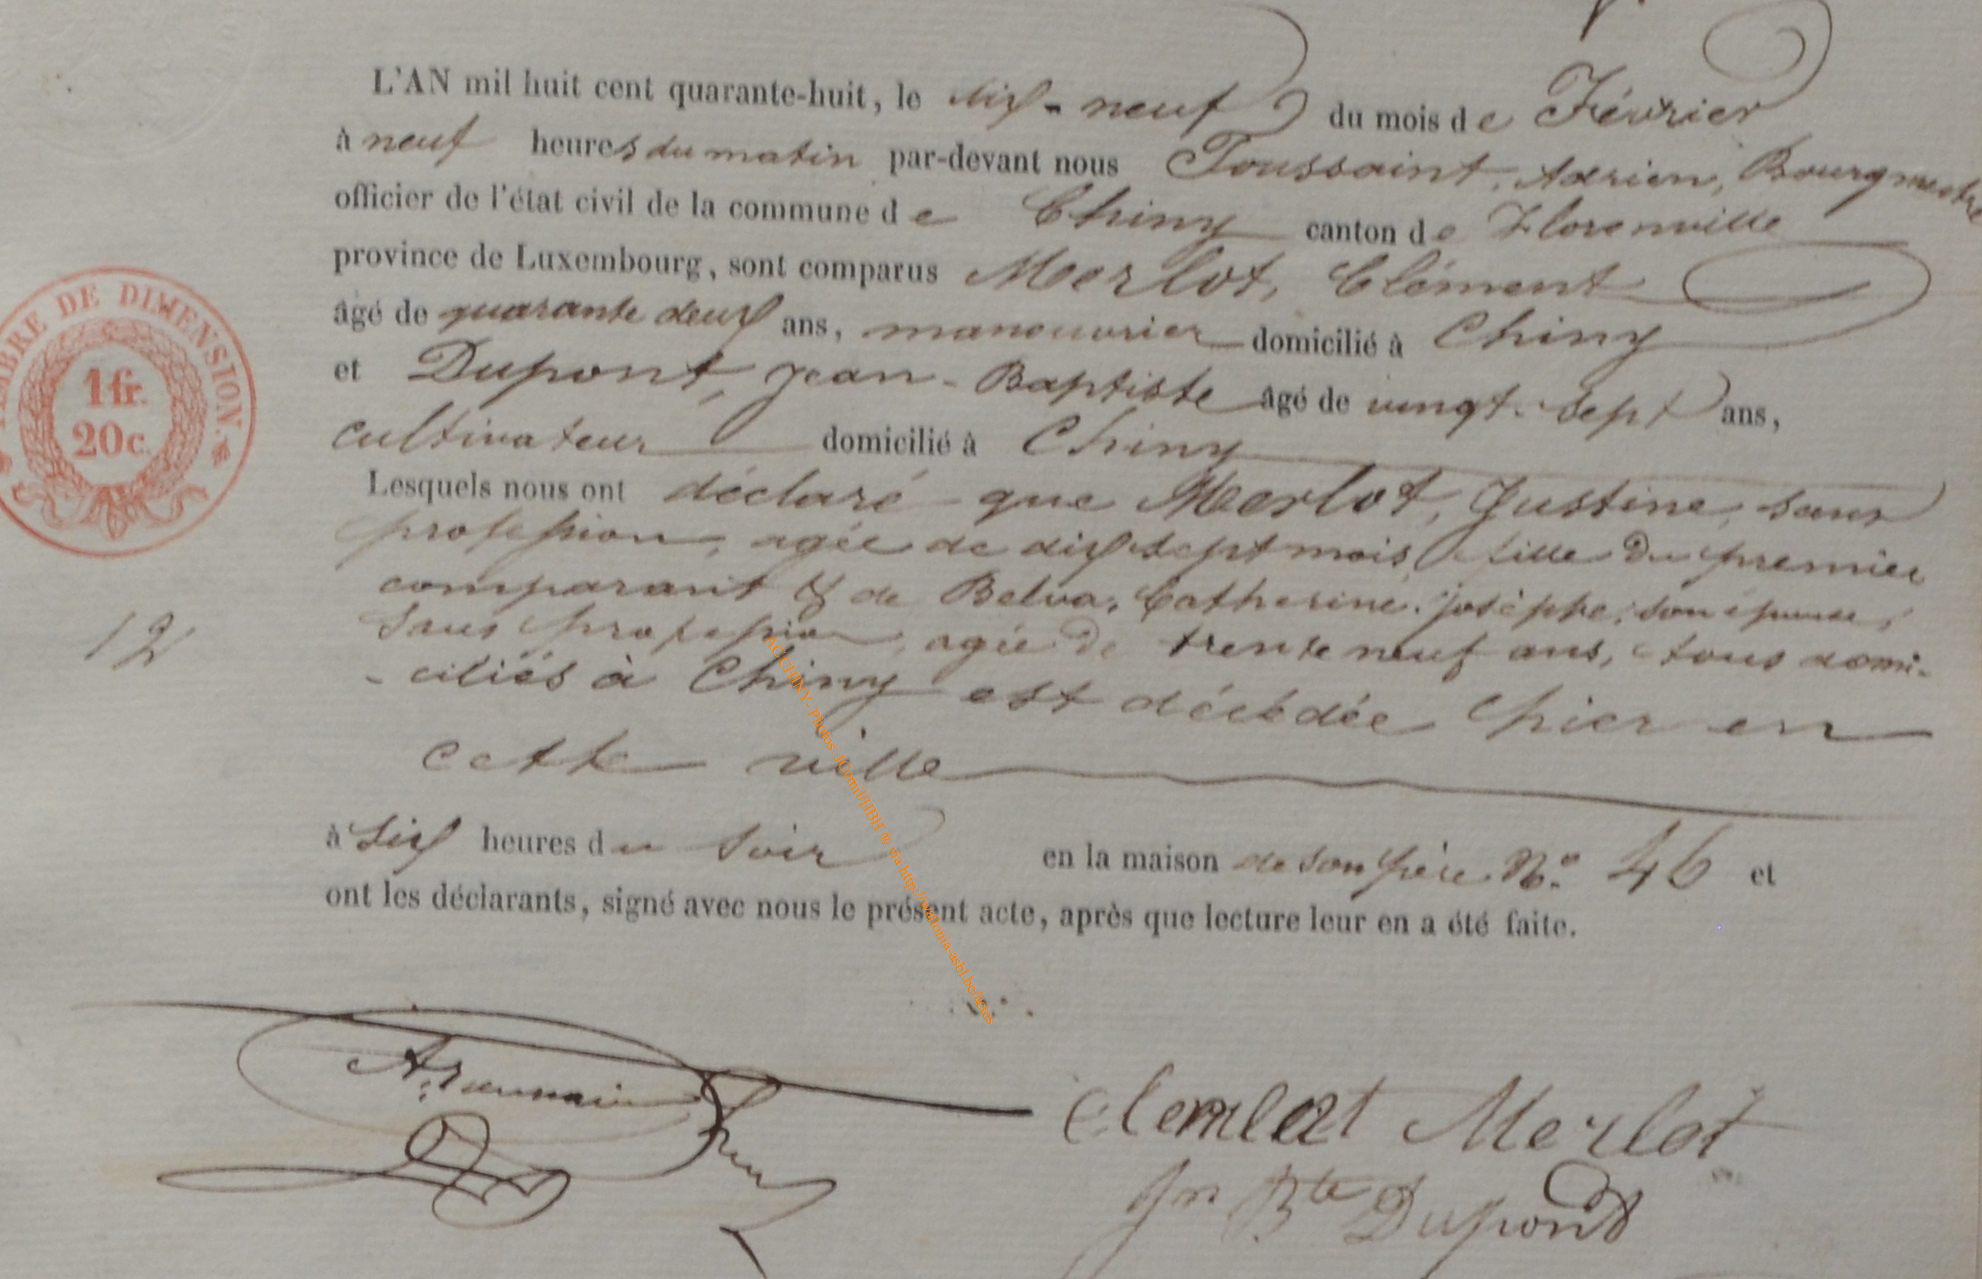 L'AN mil huit cent quarante-huit, le dix-neuf du mois de Février
à neuf heures du matin par-devant nous Toussaint, Adrien, Bourgmestre
officier de l'état civil de la commune de Chiny canton de Florenville
province de Luxembourg, sont comparus Merlot, Clément
âgé de quarante deux ans, manouvrier domicilié à Chiny
et Dupont, Jean-Baptiste âgé de vingt-sept ans,
cultivateur domicilié à Chiny
Lesquels nous ont déclaré que Merlot, Justine, sans
profession, agée de dix sept mois, fille du premier
comparant & de Belva, Catherine. josèphe, son épouse,
12
Sans profession, agée de trente neuf ans, tous domi-
-ciliés à Chiny est décédée hier en
cette ville
à Six heures du Soir en la maison de son père N.º 46 et
ont les déclarants, signé avec nous le présent acte, après que lecture leur en a été faite.
TIMBRE DE DIMENSION.
1 fr.
20 c.
Merlot
Jn Bte Dupont